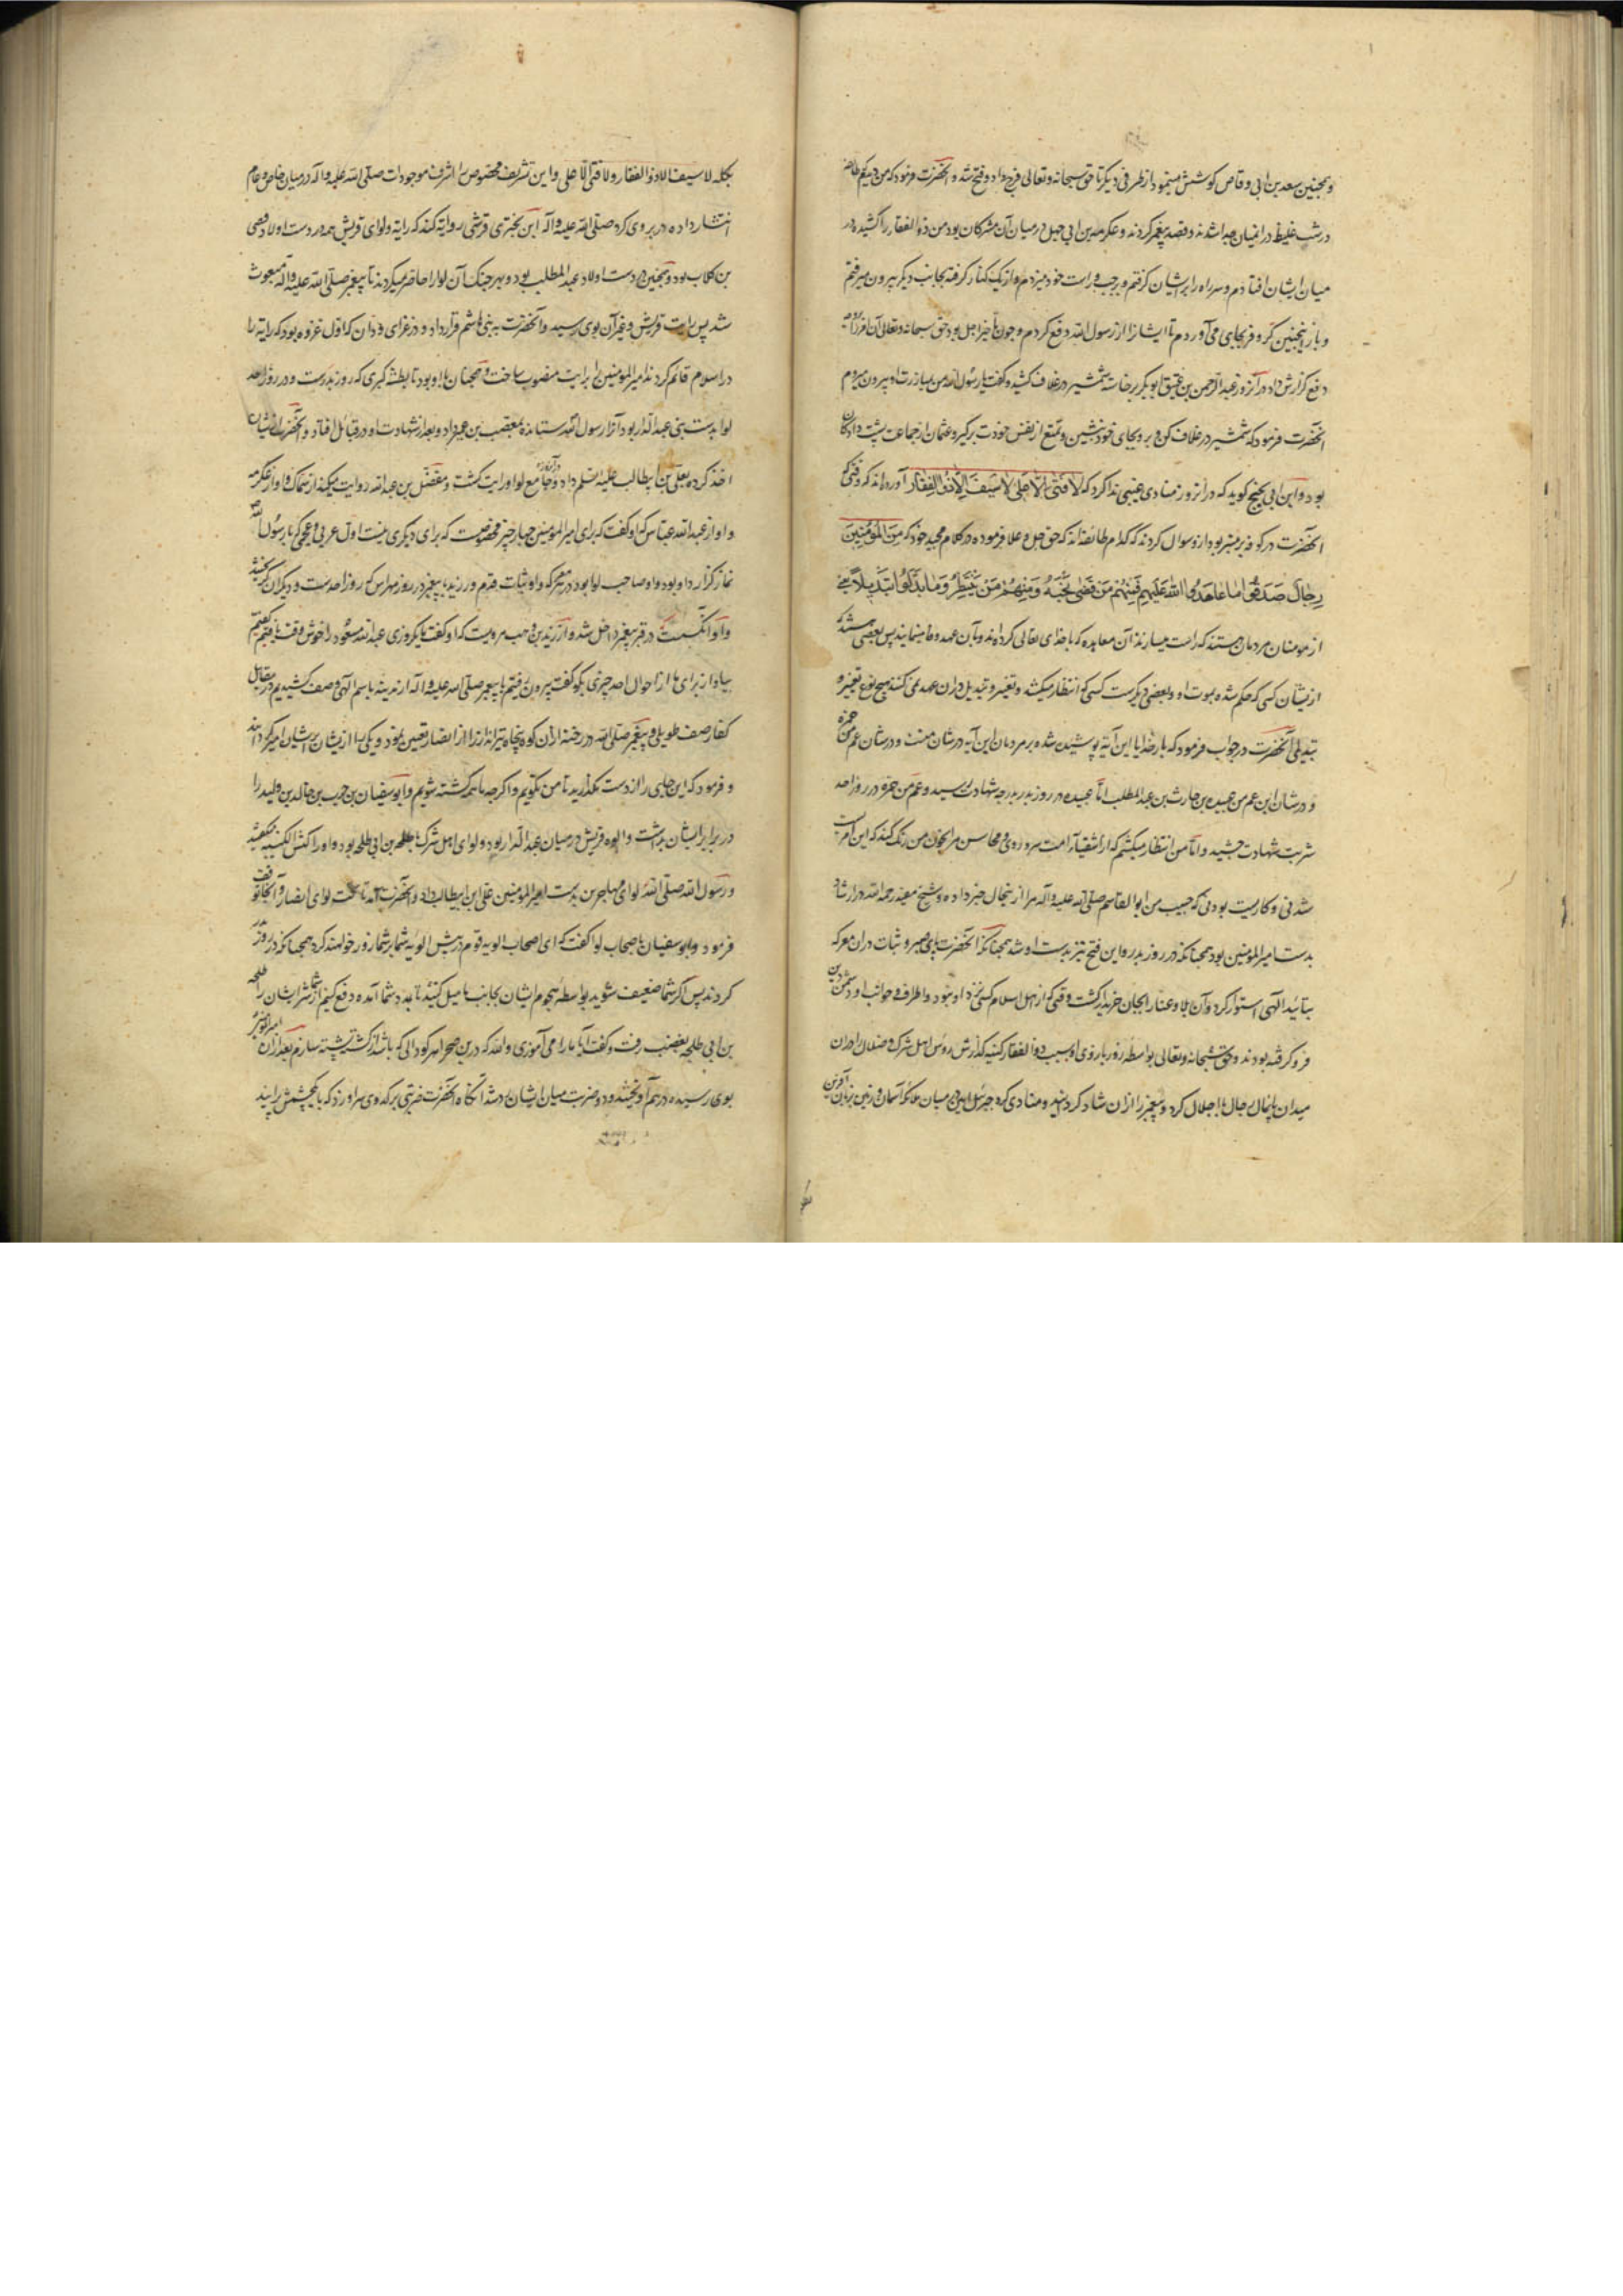 و همچنین سعد بن ابی وقاص کوشش مینمود از طرفی دیگر تا حق سبحانه و تعالی فرج داد و فتح شد و آنحضرت فرمود که من دیدم
در شب غلیظ در انمیان جدا شدند و قصد پیغمبر کردند و عکرمه بن ابی جهل در میان آن مشرکان بود من ذو الفقار را کشیده در
میان ایشان افتادم و سر راه را بر ایشان گرفتم و بر چپ و راست خود میزدم و از یک کنار گرفته بجانب دیگر بیرون میرفتم
و باز اینچنین کر و فر بجای می آوردم تا ایشانرا از رسول الله دفع کردم و چون تأخیر اجل بود حق سبحانه و تعالی آن
دفع کزارش داد و در آنروز عبد الرحمن بن عتیق ابو بکر برخاسته شمشیر در غلاف کشید و گفت یا رسول الله من بمبارزت او بیرون میروم
آنحضرت فرمود که شمشیر در غلاف کن و برو بجای خود بنشین و تمتع از نفس خودت برگیر و عثمان از جماعت پشت دادگان
بود و ابن ابی نجیح گوید که در آنروز منادی غیبی ندا کرد که لا فتی الا علی لا سیف الا ذو الفقار آورده اند که وقتی که
آنحضرت در کوفه بر منبر بود ازو سوال کردند که کدام طائفه اند که حق جل و علا فرموده در کلام مجید خود که من المؤمنین
رجال صدقوا ما عاهدوا الله علیه فمنهم من قضی نحبه ومنهم من ینتظر وما بدلوا تبدیلا یعنی
از مومنان مردمان هستند که راست میسازند آن معاهده که با خدای تعالی کرده اند و بآن عهد وفا مینمایند پس بعضی
ازیشان کسی که حکم شده بموت او و بعضی دیگرست کسی که انتظار میکشد و تغییر و تبدیل در ان عهد نمی کنند هیچ نوع تغییر و
تبدیلی آنحضرت در جواب فرمود که بار خدایا این آیه پوشیده شده بر مردمان این آیه در شان منست و در شان عم من حمزه
و در شان ابن عم من عبیده بن حارث بن عبد المطلب اما عبیده در روز بدر بدرجه شهادت رسید و عم من حمزه در روز احد
شربت شهادت چشید و اما من انتظار میکشم که اشقیاء امت سر و روی و محاسن مرا بخون من رنگ کند که این امریست
شدنی و کاریست بودنی که حبیب من ابو القاسم صلی الله علیه و آله مرا ازینحال خبر داده و شیخ مفید رحمه الله در ارشاد
بدست امیر المومنین بود همچنانکه در روز بدر و این فتح نیز بدست او شد همچنانکه آنحضرت پای صبر و ثبات در ان معرکه
بتائید الهی استوار کرد و آن بلا و عنا را بجان خریدار گشت وقتی که از اهل اسلام کسی نزد او نبود و اطراف و جوانب او دشمن دین
فرو گرفته بودند و حق سبحانه و تعالی بواسطه زور بازوی او بسبب ذو الفقار رؤس اهل شرک و ضلال را در ان
میدان پایمال رجال با اجلال کرد و پیغمبر را ازان شاد کردانید و منادی کرد جبرئیل امین در میان ملائکه آسمان و زمین بزبان آفرین
بکلمه لا سیف الا ذو الفقار ولا فتی الا علی و این تشریف مخصوص اشرف موجودات صلی الله علیه و اله در میان خاص و عام
انتشار داده در بروی کرد صلی الله علیه و آله ابن بختری قرشی روایه کند که رایه و لوای قریش همه در دست اولاد قصی
بن کلاب بود و همچنین در دست اولاد عبد المطلب بود و بهر جنگ آن لوا را حاضر میکردند تا پیغمبر صلی الله علیه و آله مبعوث
شد پس رایت قریش و غیر آن بوی رسید و آنحضرت به بنی هاشم قرار داد و در غزای ودان که اول غزوه بود که رایه را
در اسلام قائم کردند امیر المومنین را برایت منصوب ساخت و همچنان با او بود تا بطشه کبری که روز بدرست و در روز احد
لوا بدست بنی عبد الدار بود آنرا رسول الله ستانده بمصعب بن عمیر داد و بعد از شهادت او در قبائل افتاد و آنحضرت ازیشان
اخذ کرده بعلی بن ابیطالب علیه السلم داد و جامع لوا و رایت گشت و مفضل بن عبد الله روایت میکند از سماک و او از عکرمه
و او از عبد الله عباس که او گفت که برای امیر المومنین چهار چیز مخصوصست که برای دیگری نیست اول عربی و عجمی که با رسول الله
نماز گزارد او بود و او صاحب لوا بود در هر معرکه و او ثبات قدم ورزید با پیغمبر در روز مهراس که روز احدست و دیگران گریختند
و او آنکسیست که در قبر پیغمبر داخل شد و از زید بن وهب مرویست که او گفت که یکروزی عبد الله مسعود را خوش وقت یافتیم گفتیم
بیا و از برای ما از احوال احد چیزی بگو گفت بیرون رفتیم با پیغمبر صلی الله علیه و آله از مدینه باسم الهی و صف کشیدیم در مقابل
کفار صف طویلی و پیغمبر صلی الله در رخنه ازان کوه پنجاه تیرانداز را از انصار تعیین نمود و یکی را ازیشان بریشان امیر گردانید
و فرمود که این جای را از دست مگذارید تا من نگویم و اگر چه ما همه کشته شویم و ابو سفیان بن حرب بن خالد بن ولید را
در برابر ایشان بداشت و الویه قریش در میان عبد الدار بود و لوای اهل شرک با طلحه بن ابی طلحه بود و او را کبش الکتیبه میگفتند
و رسول الله صلی الله لوای مهاجرین بدست امیر المومنین علی ابن ابیطالب داد و آنحضرت آمد تا تحت لوای انصار و آنجا توقف
فرمود و ابو سفیان باصحاب لوا گفت که ای اصحاب الویه قوم در پیش الویه شما بر شما زور خواهند کرد همچنانکه در روز بدر
کردند پس اگر شما ضعیف شوید بواسطه هجوم ایشان بجانب ما میل کنید تا بمدد شما آمده دفع کنیم از شما شر ایشان را طلحه
بن ابی طلحه بغضب رفت و گفت آیا ما را می آموزی والله که درین صحرا هر گودالی که باشد از کشته پشته سازم بعد ازان امیر المومنین
بوی رسیده درهم آویختند و دو ضربت میان ایشان رد شد آنگاه آنحضرت ضربتی بر گدوی سر او زد که یکچشمش را